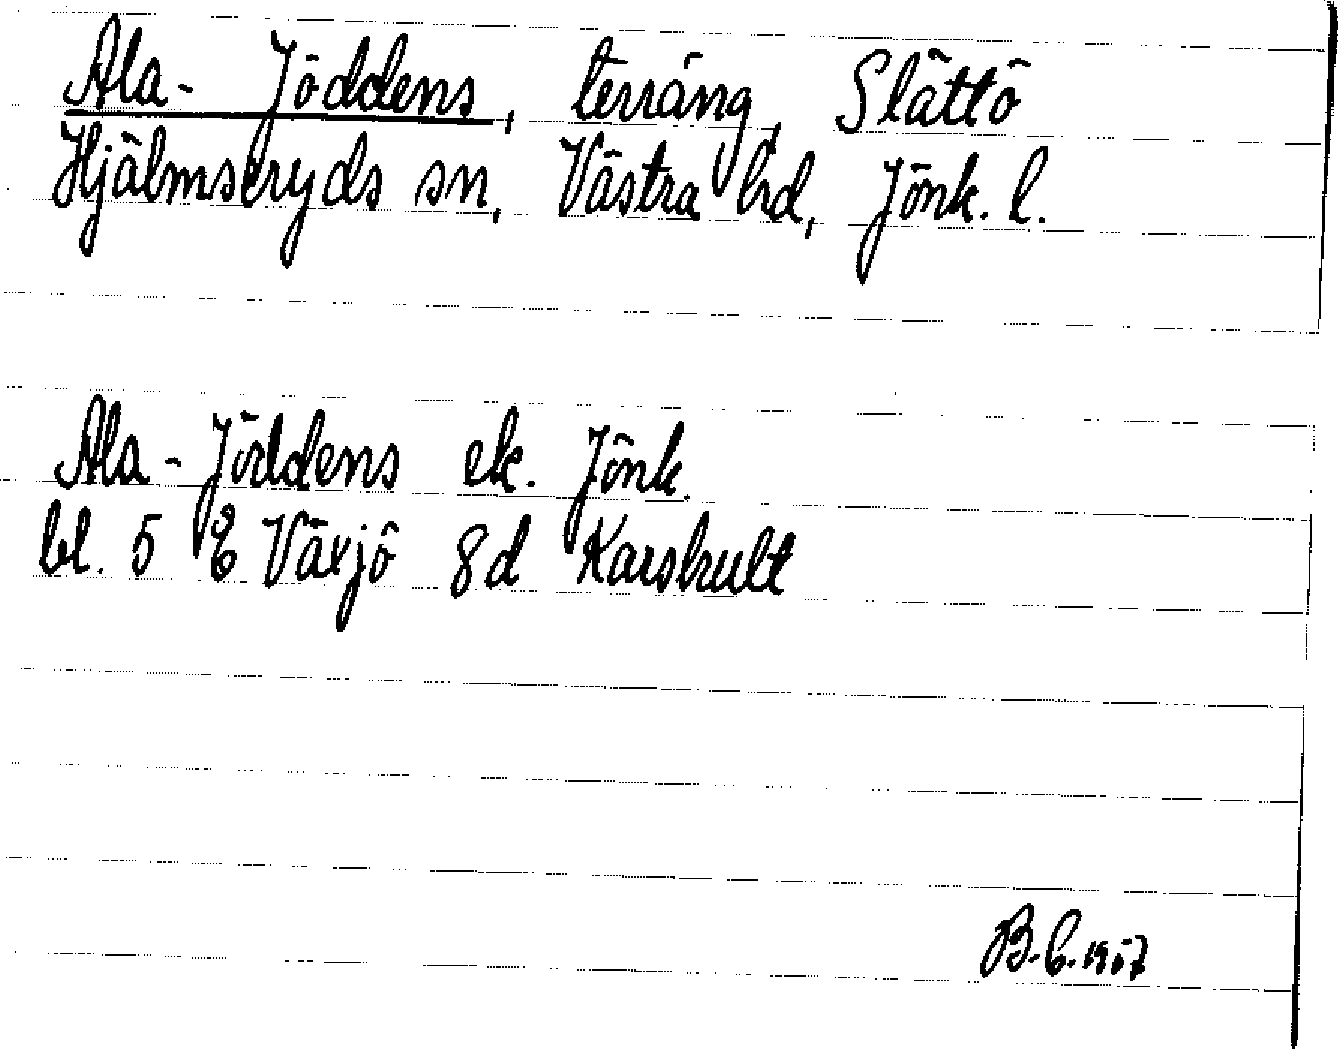 Ala-Jöddens, terräng, Slättö
Hjälmseryds sn, Västra hd, Jönk. l.
Ala-Jöddens ek. Jönk.
bl. 5 E Växjö 8d Karshult
B.C.